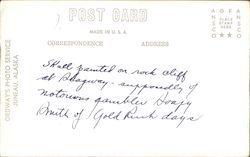 POST CARD
MADE IN U.S.A.
CORRESPONDENCE ADDRESS
ANSCO
PLACE
STAMP
HERE
ANSCO
ORDWAY'S PHOTO SERVICE
JUNEAU, ALASKA
Skull painted on rock cliff
at Skagway - supposedly of
notorious gambler Soapy
Smith of Gold Rush days